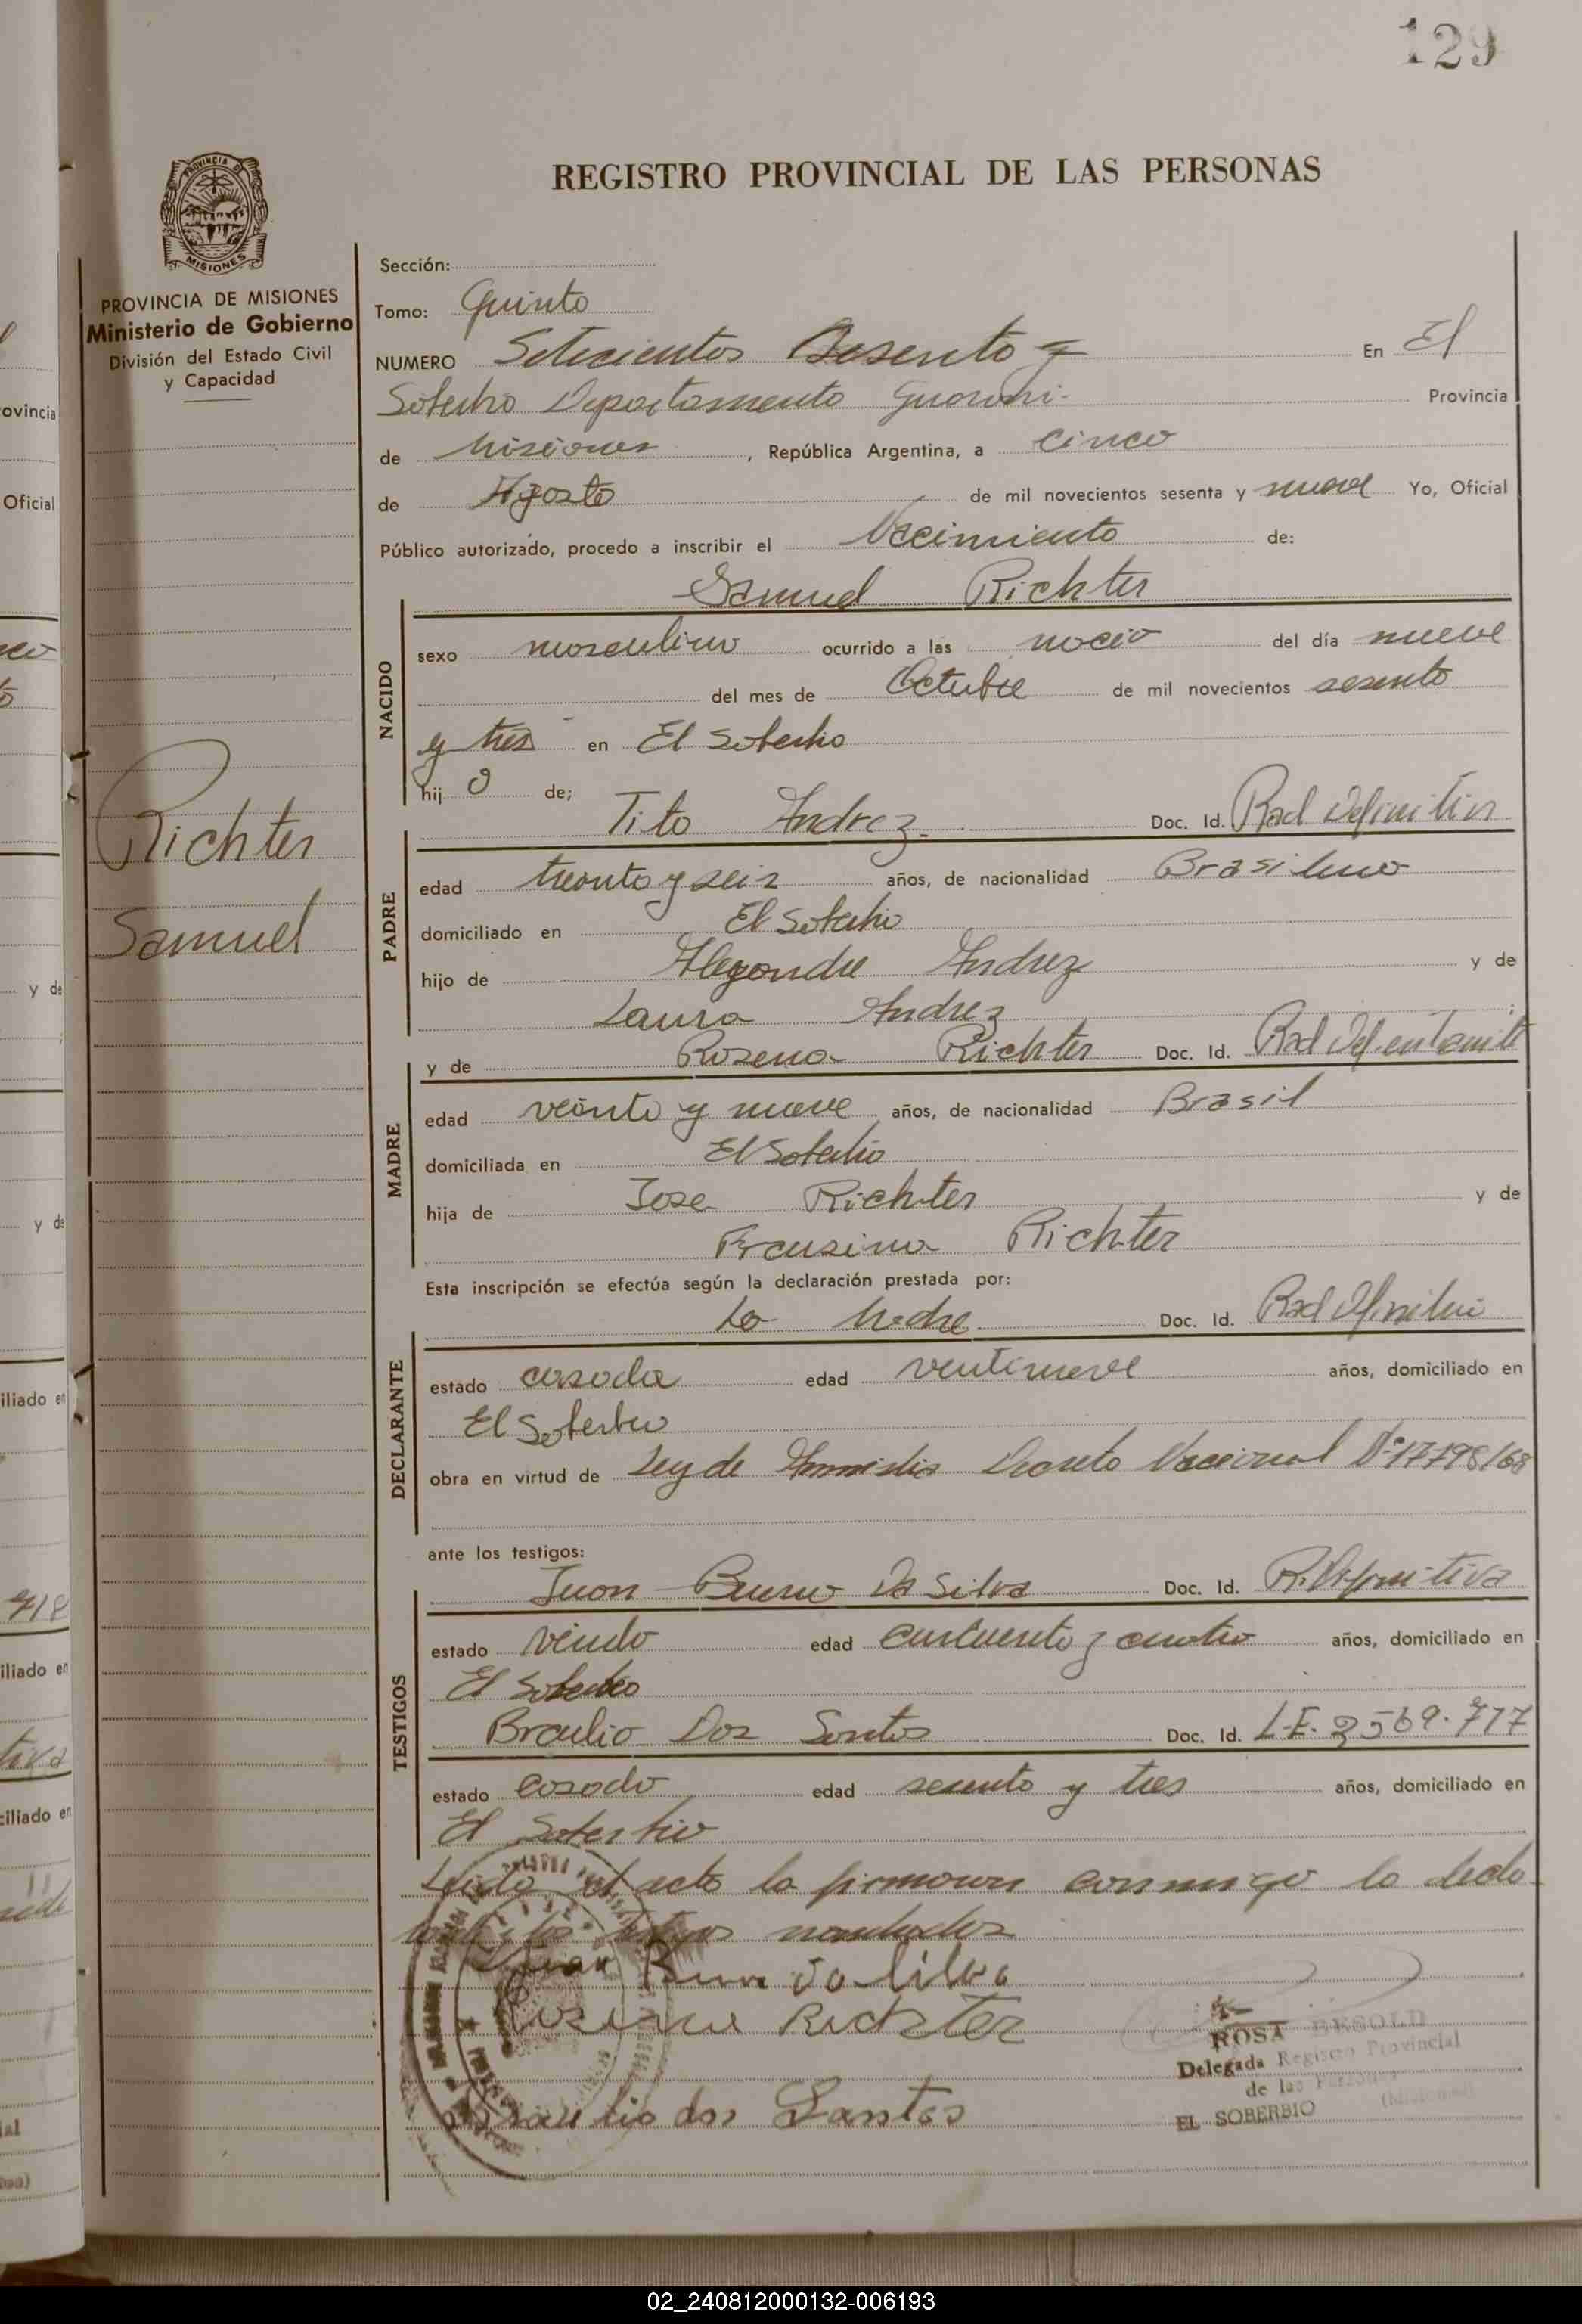 129
REGISTRO PROVINCIAL DE LAS PERSONAS
PROVINCIA MISIONES
PROVINCIA DE MISIONES
Ministerio de Gobierno
División del Estado Civil
y Capacidad
Richter
Samuel
Sección:
Tomo: Quinto
NUMERO Setecientos Sesenta En El
Soberbio Departamento Guarani- Provincia
de Misiones, República Argentina, a cinco
de Agosto de mil novecientos sesenta y nueve Yo, Oficial
Público autorizado, procedo a inscribir el Nacimiento de:
Samuel Richter
NACIDO
sexo masculino ocurrido a las nacio del día nueve
del mes de Octubre de mil novecientos sesenta
y tres en El Soberbio
hij o de;
PADRE
Tito Andrez Doc. Id. Rad Definitiva
edad treinta y seis años, de nacionalidad Brasileno
domiciliado en El Soberbio
hijo de Alejandre Andrez y de
Laura Andrez;
MADRE
y de Rosena Richter Doc. Id. Rad
edad veinte y nueve años, de nacionalidad Brasil
domiciliada en El Soberbio
hija de Jose Richter y de
Richter
Esta inscripción se efectúa según la declaración prestada por:
DECLARANTE
La Madre Doc. Id. Rad Definitiva
estado casada edad ventinueve años, domiciliado en
El Soberbio
obra en virtud de Ley de Amnistia Decreto Nacional Nº 17798/68
ante los testigos:
TESTIGOS
Juan Bueno Da Silva Doc. Id. R. Definitiva
estado viudo edad cincuenta y cuatro años, domiciliado en
El Soberbio
Braulio Dos Santos Doc. Id. L.E. 2569.717
estado casado edad sesenta y tres años, domiciliado en
El Soberbio
Leida el acta la firmaron conmigo la decla-
testigos nombrados
Juan Bueno da Silva
Rosena Richter
Braulio dos Santos
ROSA BESOLD
Delegada Registro Provincial
de las Personas
EL SOBERBIO (Misiones)
ovincia
Oficial
y de
y de
iliado en
718
iliado en
ciliado en
02_240812000132-006193